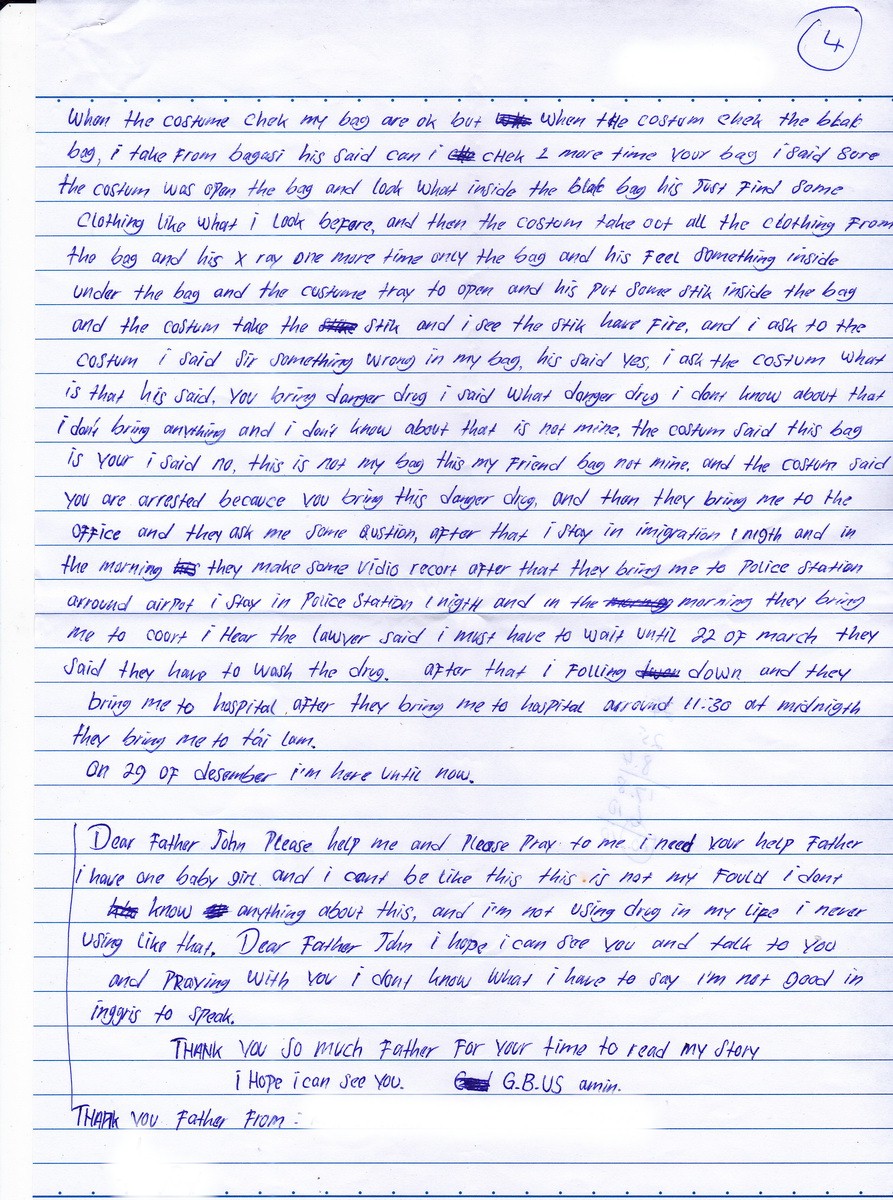 4
When the costume chek my bag are ok but when the costum chek the blak
bag, i take From bagasi his said can i chek 1 more time your bag i said sure
the costum was open the bag and look what inside the blak bag his Just Find some
clothing like what i look before, and then the costum take out all the clothing From
the bag and his x ray one more time only the bag and his Feel something inside
under the bag and the custume tray to open and his put some stik inside the bag
and the costum take the stik and i see the stik have Fire, and i ask to the
costum i said sir something wrong in my bag, his said yes, i ask the costum what
is that his said. you bring danger drug i said what danger drug i dont know about that
i don't bring anything and i don't know about that is not mine. the costum said this bag
is your i said no, this is not my bag this my Friend bag not mine. and the costum said
you are arrested becauce you bring this danger drug. and than they bring me to the
OFFice and they ask me some Qustion, after that i stay in imigration 1 nigth and in
the morning they make some vidio recort after that they bring me to Police station
arround airpot i stay in Police station 1 nigth and in the morning they bring
me to court i Hear the lawyer said i must have to wait until 22 OF march they
said they have to wash the drug. after that i Folling down and they
bring me to hospital. after they bring me to hospital arround 11:30 at midnigth
they bring me to tai lam.
On 29 OF desember i'm here until now.
Dear Father John Please help me and Please Pray to me i need your help Father
i have one baby girl. and i cant be like this this is not my Fould i dont
know anything about this, and i'm not using drug in my life i never
using like that. Dear Father John i hope i can see you and talk to you
and Praying with you i dont know what i have to say i'm not good in
inggris to speak.
THANK YOU so much Father For your time to read my story
i Hope i can see you. G.B.US amin.
THANK YOU Father From :